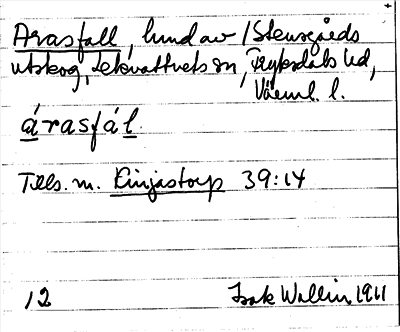 Arasfall, hmd av /Stensgårds
utskog, Lekvattnets sn, Fryksdals hd,
Värml. l.
árasfál.
Tills. m. Kinjastorp 39:14
12 Isak Wallin 1911